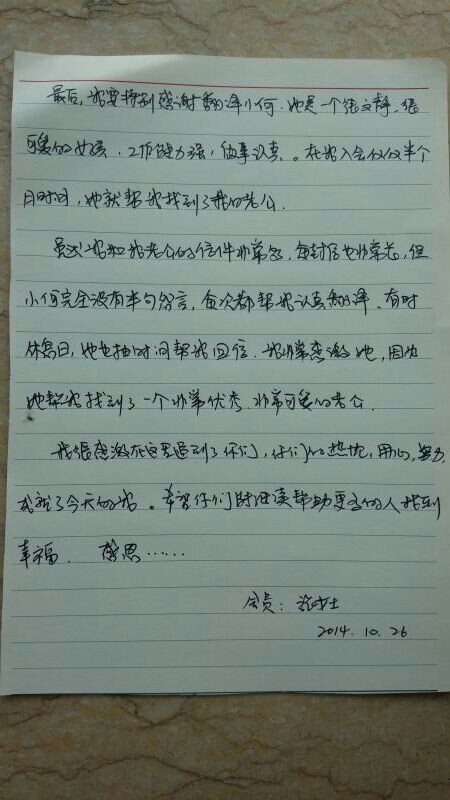 最后，我要特别感谢翻译小何，她是一个很文静、很
可爱的女孩，工作能力强，做事认真。在我入会仅仅半个
月时间，她就帮我找到了我的老公。
虽然我和我老公的信件非常多，每封信也非常长，但
小何完全没有半句怨言，每次都帮我认真翻译，有时
休息日，她也抽时间帮我回信。我非常感激她，因为
她帮我找到了一个非常优秀、非常可爱的老公。
我很感激在这里遇到了你们，你们的热忱，用心，努力，
成就了今天的我。希望你们能继续帮助更多的人找到
幸福。感恩……
会员：张女士
2014.10.26